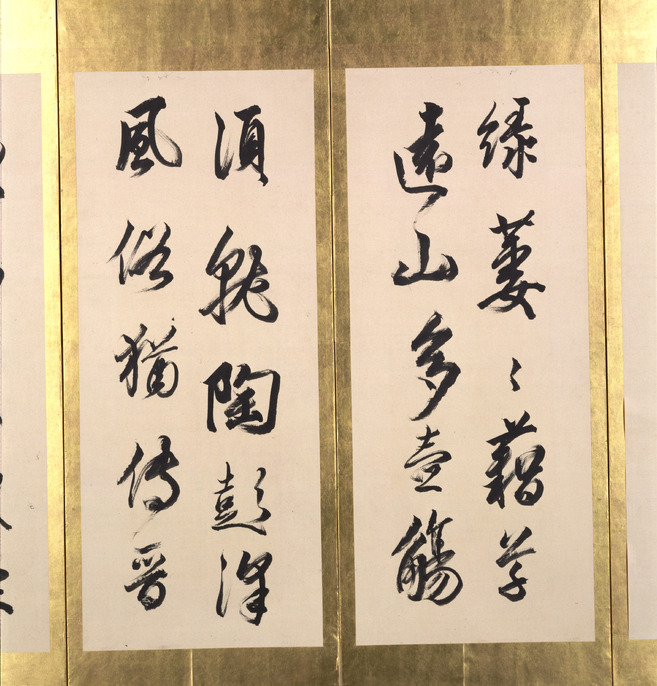 綠萋々藉草
遠山多壺觴
須就陶彭澤
風俗猶傳晋